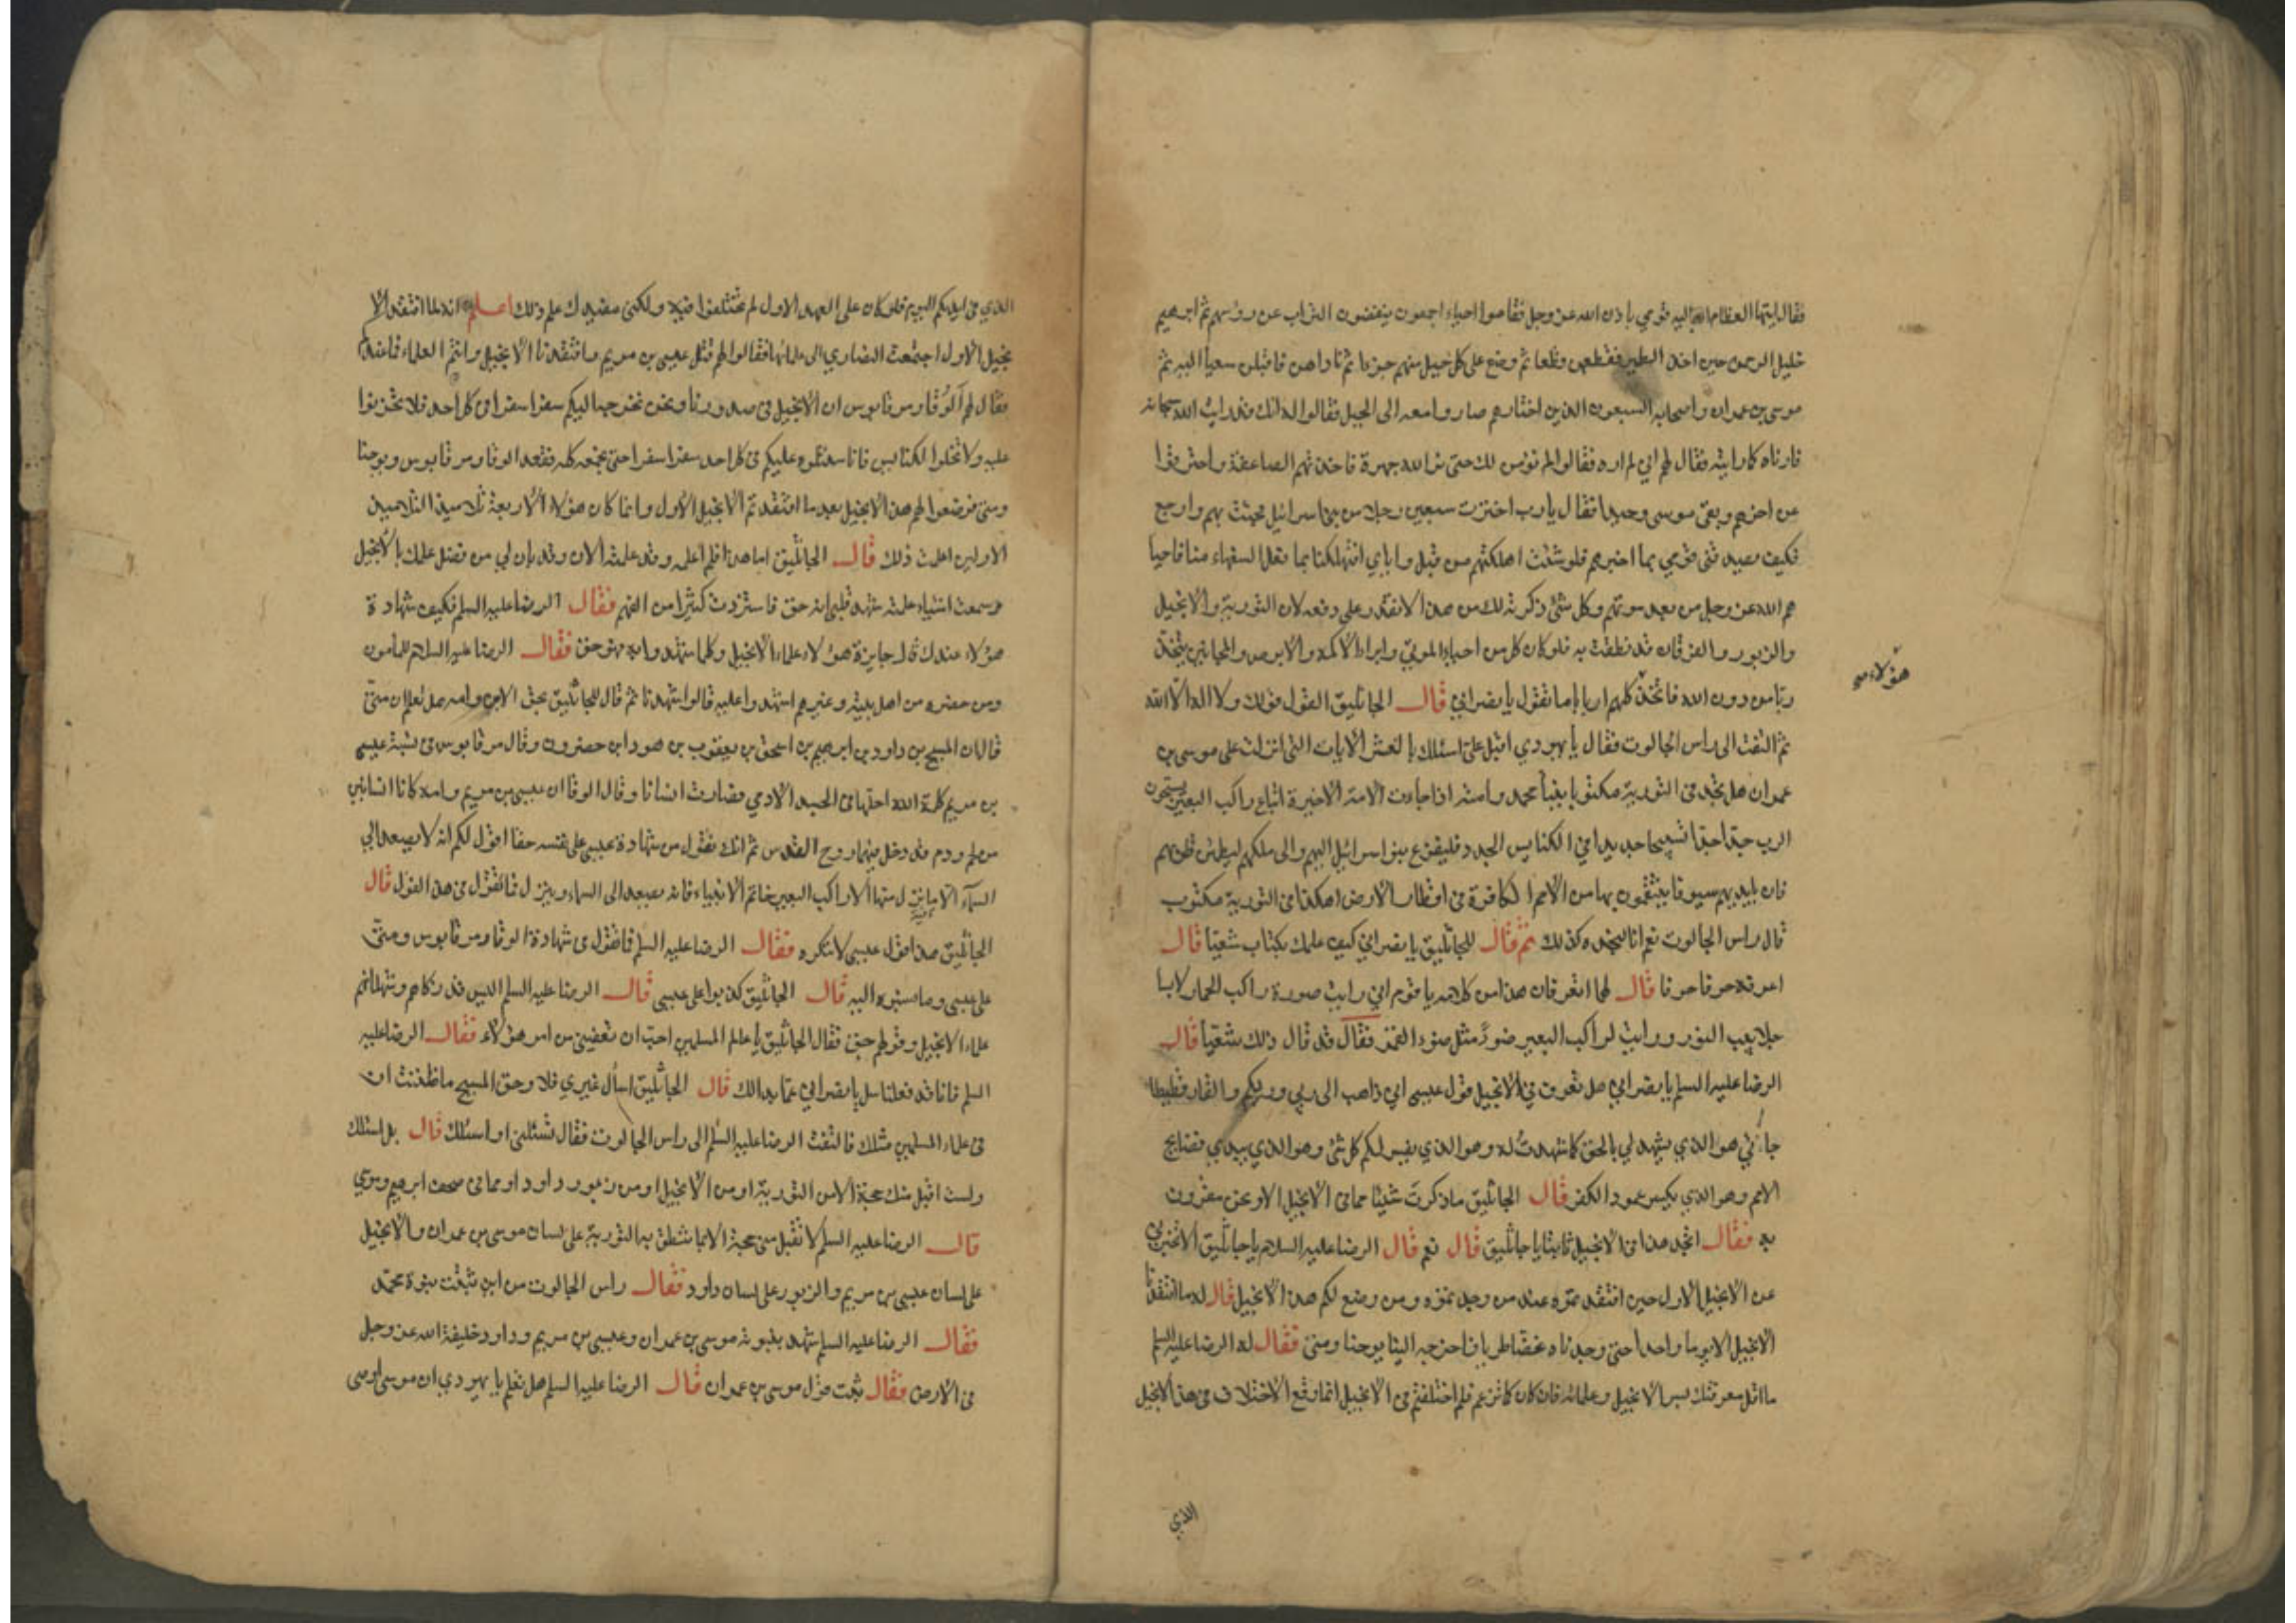 فقال ايتها العظام البالية قومي باذن الله عز وجل فقاموا احياء اجمعون ينفضون التراب عن رؤسهم ثم ابرهيم
خليل الرحمن حين اخذ الطير فقطعهن قطعا ثم وضع على كل جبل منهم جزءا ثم ناداهن فاقبلن سعيا اليه ثم
موسى بن عمران واصحابه السبعون الذين اختارهم صاروا معه الى الجبل فقالوا له انك قد رايت الله سبحانه
فارناه كما رايته فقال لهم اني لم اره فقالوا لم نؤمن لك حتى نرا الله جهرة فاخذتهم الصاعقة واحترقوا
عن اخرهم وبقى موسى وحيدا فقال يا رب اخترت سبعين رجلا من بني اسرائيل فجئت بهم وارجع
فكيف يصدقنى قومي بما اخبرهم فلو شئت اهلكتهم من قبل واياي افتهلكنا بما فعل السفهاء منا فاحيا
هم الله عز وجل من بعد موتهم وكل شئ ذكرته لك من هذا لا تقدر على دفعه لان التورية والانجيل
والزبور والفرقان قد نطقت به فلو كان كل من احيا الموتى وابرا الاكمه والابرص والمجانين يتخذ
هؤلاء
ربا من دون الله فاتخذ كلهم اربابا ما تقول يا نصراني قال الجاثليق القول قولك ولا اله الا الله
ثم التفت الى راس الجالوت فقال يا يهودي اقبل على اسئلك بالعشر الايات التى انزلت على موسى بن
عمران هل تجد فى التورية مكتوبا بنبأ محمد وامته اذا جاءت الامة الاخيرة اتباع راكب البعير يسبحون
الرب جدا جدا تسبيحا جديدا في الكنايس الجدد فليفزع بنو اسرائيل اليهم والى ملكهم ليطمئن قلوبهم
فان بايديهم سيوفا ينتقمون بها من الامم الكافرة فى اقطار الارض اهكذا فى التورية مكتوب
قال راس الجالوت نعم انا لنجده كذلك ثم قال للجاثليق يا نصراني كيف علمك بكتاب شعيا قال
اعرفه حرفا حرفا قال لهما اتعرفان هذا من كلامه يا قوم اني رايت صورة راكب الحمار لابسا
جلابيب النور ورايت راكب البعير ضوء مثل ضوء القمر فقال قد قال ذلك شعيا قال
الرضا عليه السلم يا نصراني هل تعرف في الانجيل قول عيسى اني ذاهب الى ربي وربكم والفارقليطا
جائي هو الذي يشهد لي بالحق كما شهدت له وهو الذي يفسر لكم كل شئ وهو الذي يبدي فضايح
الامم وهو الذي يكسر عمود الكفر قال الجاثليق ما ذكرت شيئا مما فى الانجيل الا ونحن مقرون
به فقال اتجد هذا فى الانجيل ثابتا يا جاثليق قال نعم قال الرضا عليه السلام يا جاثليق الا تخبرني
عن الانجيل الاول حين افتقدتموه عند من وجدتموه ومن وضع لكم هذا الانجيل قال له ما افتقدنا
الانجيل الا يوما واحدا حتى وجدناه غضا طريا فاخرجه الينا يوحنا ومتى فقال له الرضا عليه السلم
ما اقل معرفتك بسر الانجيل وعلمائه فان كان كما تزعم فلم اختلفتم فى الانجيل انما وقع الاختلاف فى هذا الانجيل
الذي
الذي فى ايديكم اليوم فلو كان على العهد الاول لم تختلفوا فيه ولكنى مفيدك علم ذلك اعلم انه لما افتقد الا
نجيل الاول اجتمعت النصاري الى علمائهم فقالوا لهم قتل عيسى بن مريم وافتقدنا الانجيل وانتم العلماء فما عندكم
فقال لهم الوقا ومرقابوس ان الانجيل فى صدورنا ونحن نخرجه اليكم سفرا سفرا فى كل احد فلا تحزنوا
عليه ولا تخلوا الكنايس فانا سنتلوه عليكم فى كل احد سفرا سفرا حتى نجمعه كله فقعد الوقا ومرقابوس ويوحنا
ومتى فوضعوا لهم هذا الانجيل بعد ما افتقدتم الانجيل الاول وانما كان هؤلاء الاربعة تلاميذ التلاميذ
الاولين اعلمت ذلك قال الجاثليق اما هذا فلم اعلمه وقد علمته الان وقد بان لي من فضل علمك بالانجيل
وسمعت اشياء علمته شهد قلبي انه حق فاستزدت كثيرا من الفهم فقال الرضا عليه السلم فكيف شهادة
هؤلاء عندك قال جايزة هؤلاء علماء الانجيل وكلما شهدوا به فهو حق فقال الرضا عليه السلام للمأمون
ومن حضره من اهل بيته وغيرهم اشهدوا عليه قالوا شهدنا ثم قال للجاثليق بحق الابن وامه هل تعلم ان متى
قال ان المسيح بن داود بن ابرهيم بن اسحق بن يعقوب بن هود ابن حضرون وقال مرقابوس فى نسبة عيسى
بن مريم كلمة الله احلها فى الجسد الادمي فصارت انسانا وقال الوقا ان عيسى بن مريم وامه كانا انسانين
من لحم ودم قد دخل فيهما روح القدس ثم انك تقول من شهادة عيسى على نفسه حقا اقول لكم انه لا يصعد الى
السماء الا ما نزل منها الا راكب البعير خاتم الانبياء فانه يصعد الى السماء وينزل فما تقول فى هذا القول قال
الجاثليق هذا قول عيسى لا ننكره فقال الرضا عليه السلم فما تقول فى شهادة الوقا ومرقابوس ومتى
على عيسى وما نسبوه اليه قال الجاثليق كذبوا على عيسى قال الرضا عليه السلم اليس قد زكاهم وشهد انهم
علماء الانجيل وقولهم حق فقال الجاثليق يا عالم المسلمين احب ان تعفيني من امر هؤلاء فقال الرضا عليه
السلم فانا قد فعلنا سل يا نصراني عما بدالك قال الجاثليق ليسأل غيري فلا وحق المسيح ما ظننت ان
فى علماء المسلمين مثلك فالتفت الرضا عليه السلم الى راس الجالوت فقال تسئلنى او اسئلك قال بل اسئلك
ولست اقبل منك حجة الا من التورية او من الانجيل او من زبور داود او مما فى صحف ابرهيم وموسي
قال الرضا عليه السلم لا تقبل منى حجة الا بما تنطق به التورية على لسان موسى بن عمران والانجيل
على لسان عيسى بن مريم والزبور على لسان داود فقال راس الجالوت من اين تثبت نبوة محمد
فقال الرضا عليه السلم شهد بنبوته موسى بن عمران وعيسى بن مريم وداود خليفة الله عز وجل
فى الارض فقال ثبت قول موسى بن عمران قال الرضا عليه السلم هل تعلم يا يهودي ان موسى اوصى